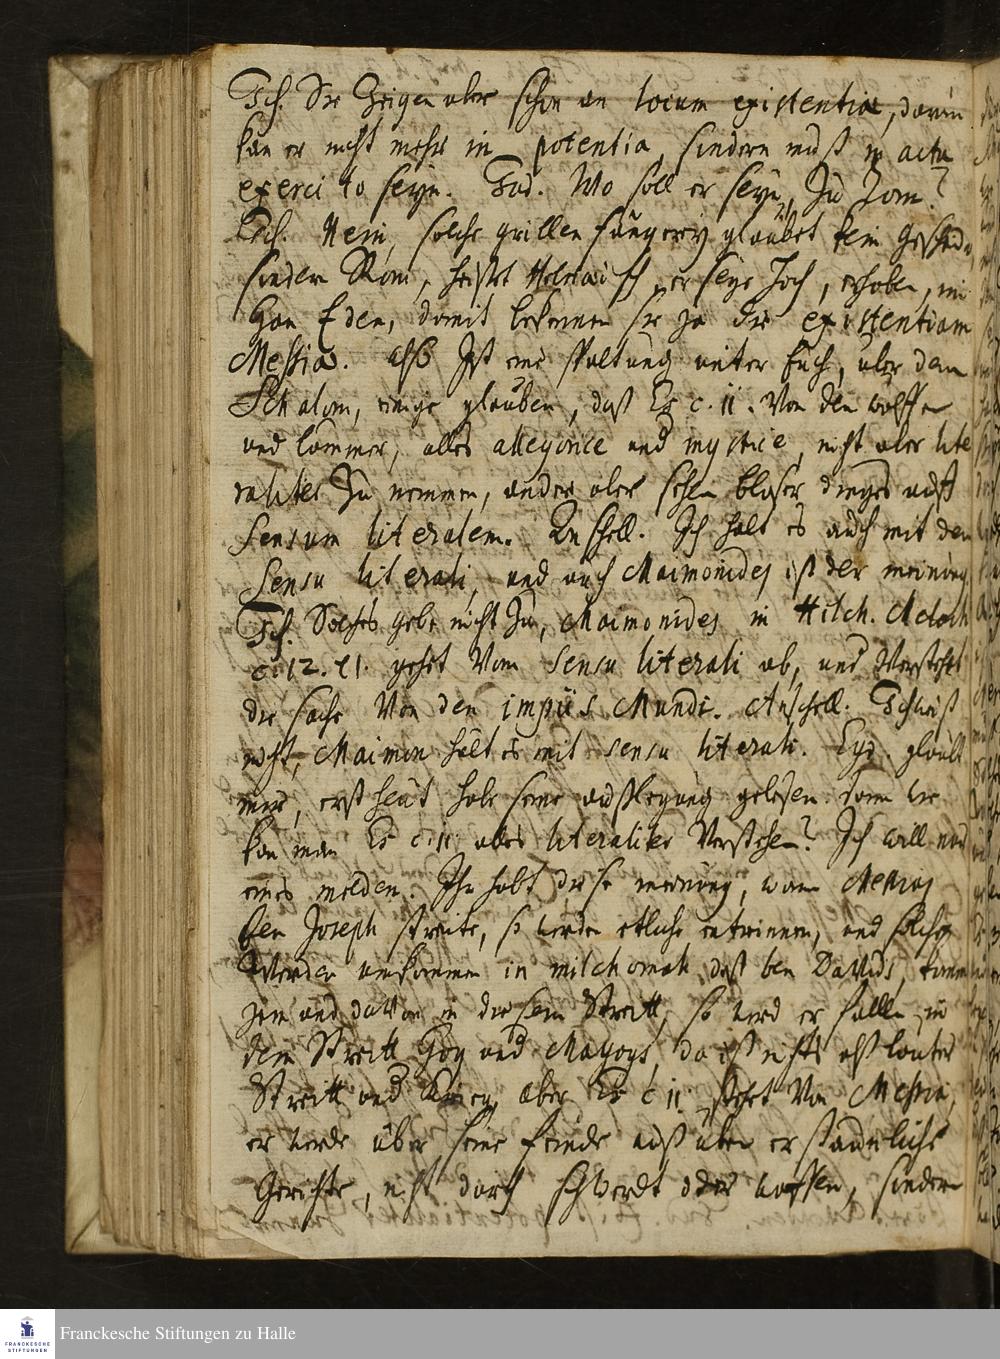 Ich. Sie Zeigen aber schon an locum existentiæ, darin
kan er nicht mehr in potentia, sondern muß in actu
exercito seyn. Jud. Wo soll er seyn, Zu Rom?
Ich. Nein, solche grillen fängerey glaubet kein
sondern Rom, heißt Hebräisch, er seye hoch, erhoben, im
Gan Eden, damit bekennen sie ja die existentiam
Messiæ. also Ist eine spaltung unter Euch, über dem
Schalom, einige glauben, daß Es c. 11. Von den wölffen
und lämmer, alles allegorice und mystice, nicht aber lite
raliter Zu nemmen, andere aber sehen bloser dinges auff
Sensum literalem. Anschell. Ich halt es auch mit dem
Sensu literali, und auch Maimonides ist der meinung
Ich. Solches gebe nicht Zu, Maimonides in Hilch. Meloch
c. 12. §1. gehet Vom Sensu literali ab, und Verstehet
die sache Von den impiis Mundi. Anschell. Ich weiß
nicht, Maimon hält es mit sensu literali. Ego. glaubt
mir, erst heut habe seine außlegung gelesen. dann wie
kan man Es c. 11 alles literaliter Verstehen? Ich will nur
eines melden. Ihr habt diese meinung, wann Messias
ben Joseph streite, so werden etliche entrinnen, und solche
Werden umkommen in milchomah, deß ben Davids, komm
jemand davon in diesem Streitt, so werd er fallen in
dem Streitt Gog und Magogs, da ist nichts alß lauter
Streitt und Krieg, aber Es c 11 stehet Von Messia,
er werde über seine feinde außüben erstaunliche
Gerichte, nicht durch schwerdt oder waffen, sondern
Franckesche Stiftungen zu Halle
FRANCKESCHE
STIFTUNGEN